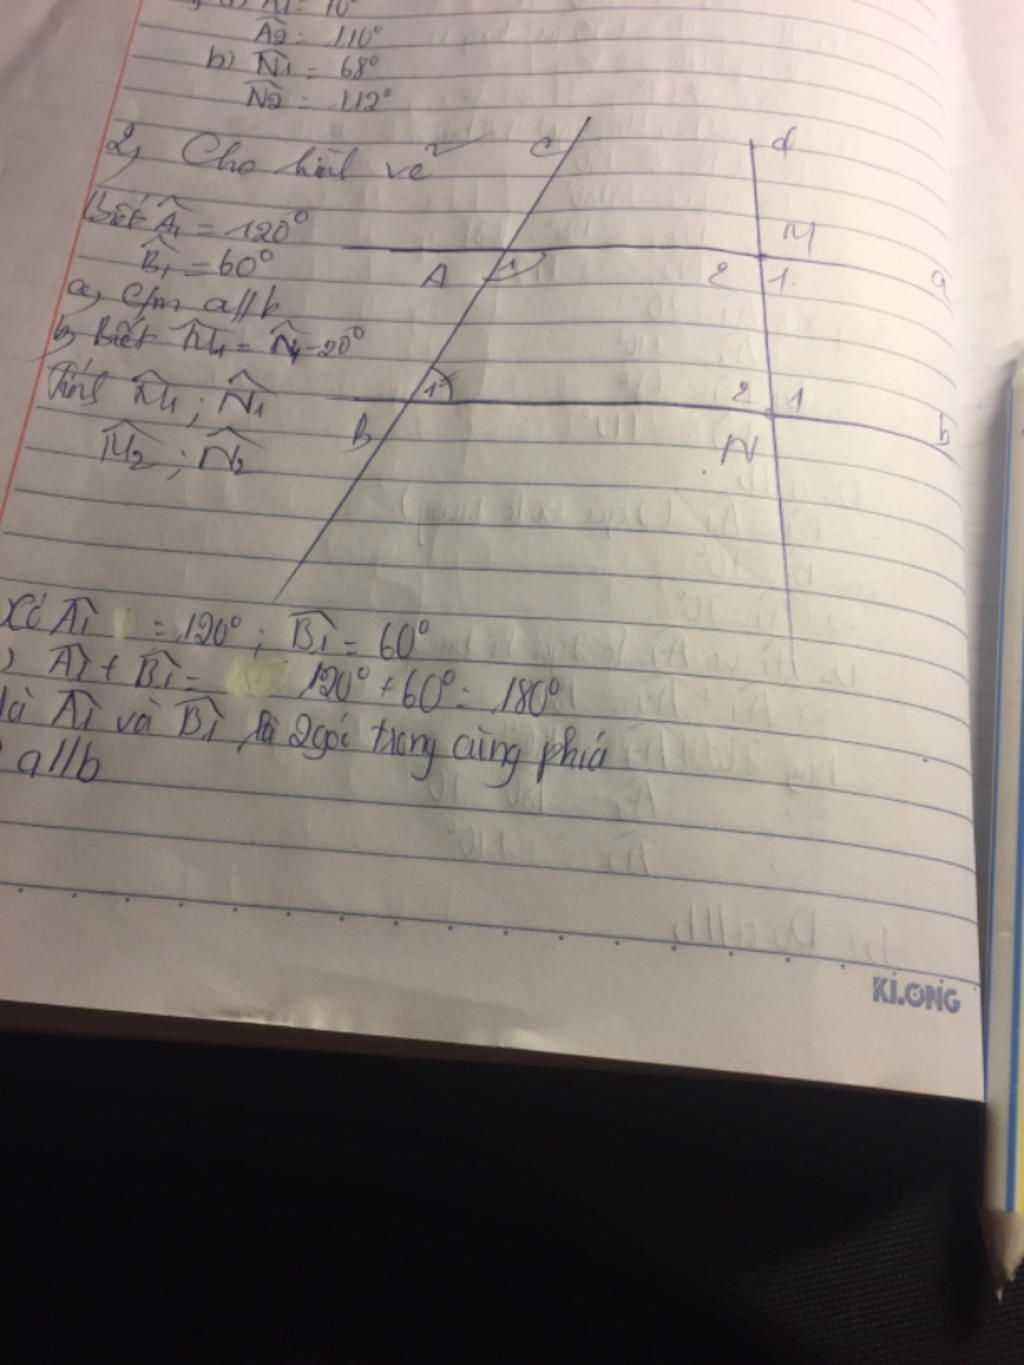 A1 = 70°
A2 = 110°
b) N1 = 68°
N2 = 112°
2, Cho hình vẽ
Biết A1 = 120°
B1 = 60°
a, c/m a//b
b, Biết M1 = N1 - 20°
Tính M1 ; N1
M2 ; N2
c d
A 1 2 M 1 a
B 1 2 N 1 b
Xó A1 = 120° ; B1 = 60°
) A1 + B1 = 120° + 60° = 180°
A1 và B1 là 2 góc trong cùng phía
a//b
KLONG